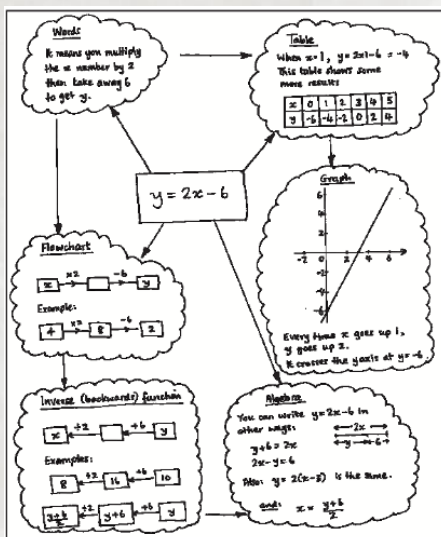 Words
It means you multiply
the x number by 2
then take away 6
to get y.
Table
When x=1, y=2x1-6 = -4
This table shows some
more results
x 0 1 2 3 4 5
y -6 -4 -2 0 2 4
y = 2x - 6
Graph
6
4
2
-2 0 2 4 6
-2
-4
-6
Every time x goes up 1,
y goes up 2.
It crosses the y axis at y=-6.
Flowchart
x ×2 -6 y
Example:
4 ×2 8 -6 2
Inverse (backwards) function
x ÷2 +6 y
Examples:
8 ÷2 16 +6 10
y+6/2 ÷2 y+6 +6 y
Algebra
You can write y=2x-6 in
other ways:
2x
y+6 = 2x
y 6
2x-y=6
Also: y = 2(x-3) is the same.
and: x = y+6/2